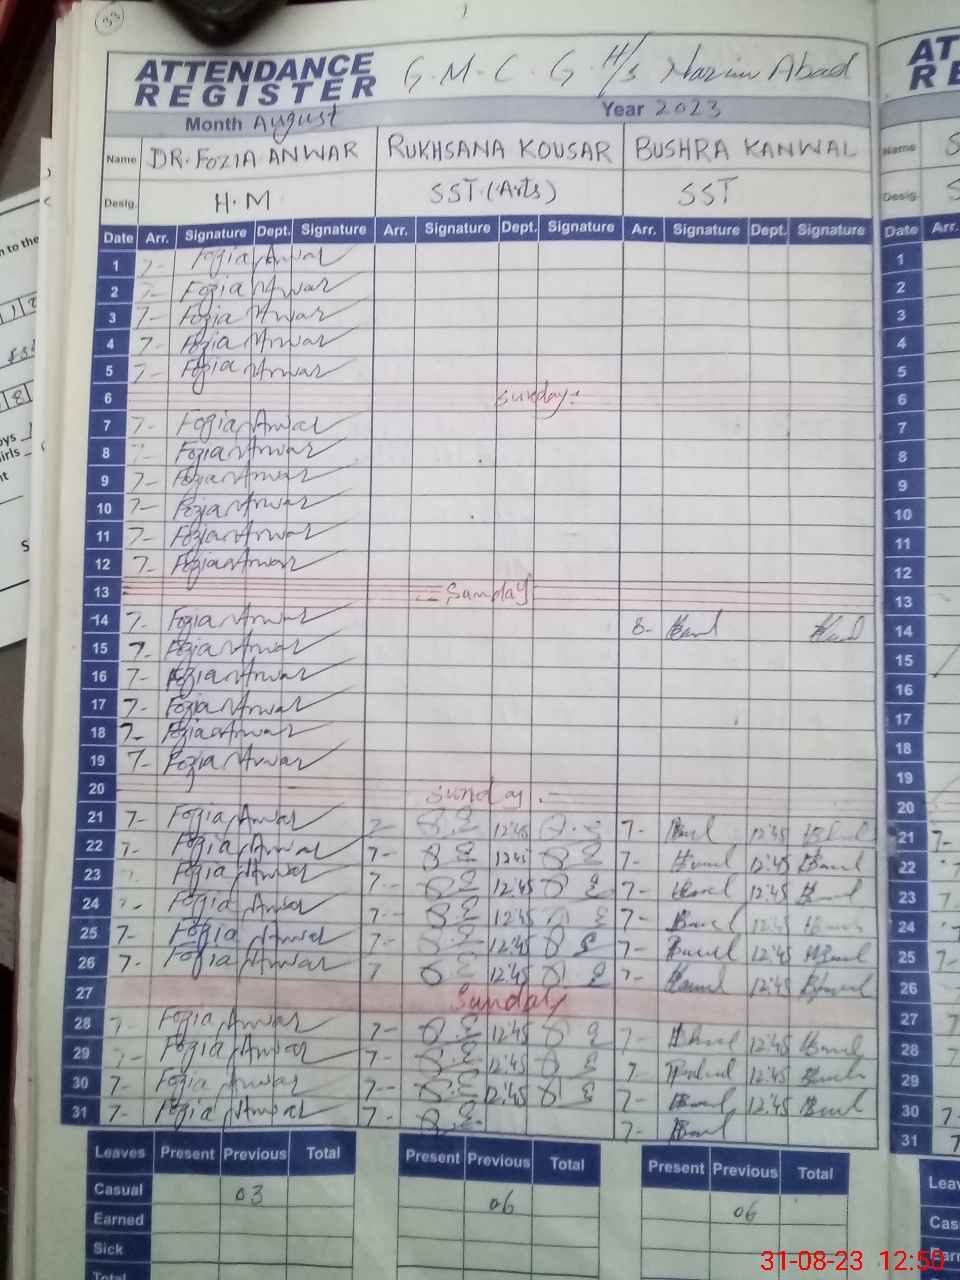 33
ATTENDANCE REGISTER G.M.C.G.H/s Nazim Abad
Month August Year 2023
Name DR. FOZIA ANWAR RUKHSANA KOUSAR BUSHRA KANWAL Name
Desig. H.M SST (Arts) SST Desig.
Date Arr. Signature Dept. Signature Arr. Signature Dept. Signature Arr. Signature Dept. Signature Date Arr.
1 7- Fozia Anwar 1
2 7- Fozia Anwar 2
3 7- Fozia Anwar 3
4 7- Fozia Anwar 4
5 7- Fozia Anwar 5
6 Sunday 6
7 7- Fozia Anwar 7
8 7- Fozia Anwar 8
9 7- Fozia Anwar 9
10 7- Fozia Anwar 10
11 7- Fozia Anwar 11
12 7- Fozia Anwar 12
13 Sunday 13
14 7- Fozia Anwar 8- 14
15 7- Fozia Anwar 15
16 7- Fozia Anwar 16
17 7- Fozia Anwar 17
18 7- Fozia Anwar 18
19 7- Fozia Anwar 19
20 Sunday 20
21 7- Fozia Anwar 7- 12:45 7- 12:45 21
22 7- Fozia Anwar 7- 12:45 7- 12:45 22
23 7- Fozia Anwar 7- 12:45 7- 12:45 23
24 7- Fozia Anwar 7- 12:45 7- 12:45 24
25 7- Fozia Anwar 7- 12:45 7- 12:45 25
26 7- Fozia Anwar 7 12:45 7- 12:45 26
27 Sunday 27
28 7- Fozia Anwar 7- 12:45 7- 12:45 28
29 7- Fozia Anwar 7- 12:45 7- 12:45 29
30 7- Fozia Anwar 7- 12:45 7- 12:45 30
31 7- Fozia Anwar 7- 7- 31
Leaves Present Previous Total Present Previous Total Present Previous Total
Casual 03 06 06
Earned
Sick
Total
31-08-23 12:50